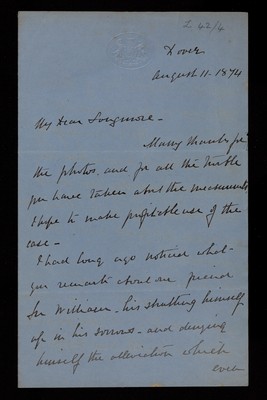 L 42/4
Dover
August 11. 1874
My Dear Longmore -
Many thanks for
the photos. and for all the trouble
you have taken about the measurements
I hope to make profitable use of the
case -
I had long ago noticed what
you remark about our friend
Sir William - his shutting himself
up in his sorrows - and denying
himself the alleviation which
even